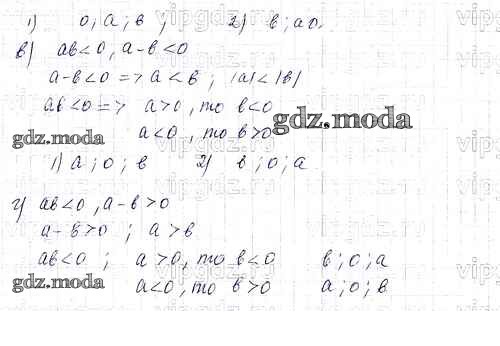 1) 0; а; в; 2) в; а 0.
в) ав<0, а-в<0
а-в<0 => а<в; |а|<|в|
ав<0 => а>0, то в<0
gdz.moda
а<0, то в>0
gdz.moda
1) а; 0; в 2) в; 0; а
г) ав<0, а-в>0
а-в>0; а>в
ав<0; а>0, то в<0 в; 0; а
gdz.moda
а<0, то в>0 а; 0; в
vipgdz.ru